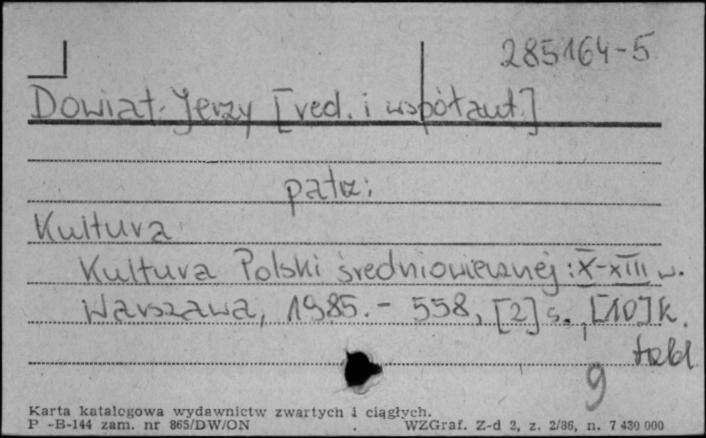 285164-5
Dowiat Jerzy [red. i współaut.]
patrz:
Kultura
Kultura Polski średniowiecznej: X-XIII w.
Warszawa, 1985. - 558, [2] s., [10] k.
tabl
9
Karta katalogowa wydawnictw zwartych i ciągłych.
P -B-144 zam. nr 865/DW/ON WZGraf. Z-d 2, z. 2/86, n. 7 430 000